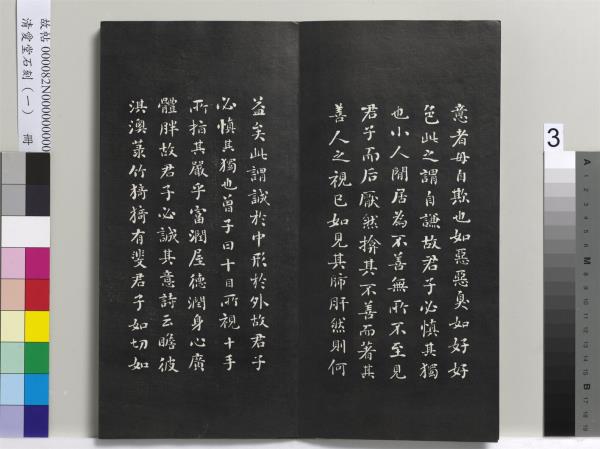 意者毋自欺也如惡惡臭如好好
色此之謂自謙故君子必慎其獨
也小人閒居為不善無所不至見
君子而后厭然揜其不善而著其
善人之視已如見其肺肝然則何
益矣此謂誠於中形於外故君子
必慎其獨也曾子曰十目所視十手
所指其嚴乎富潤屋德潤身心廣
體胖故君子必誠其意詩云瞻彼
淇澳菉竹猗猗有斐君子如切如
故帖 000082N000000000
清愛堂石刻(一) 冊
3
A
1
2
3
4
5
6
M
8
9
10
11
12
13
14
15
B
17
18
19